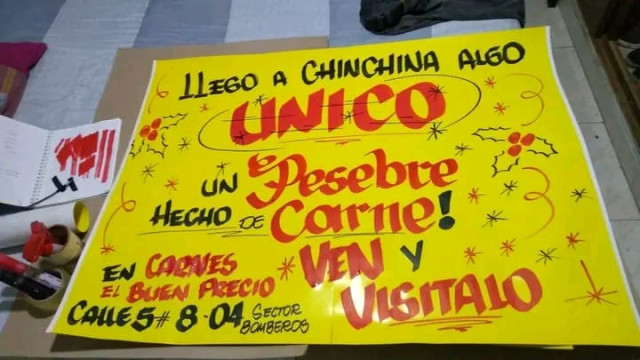 LLEGO A CHINCHINA ALGO
UNICO
UN Pesebre
HECHO DE Carne!
EN CARNES VEN Y
EL BUEN PRECIO VISITALO
CALLE 5# 8-04 SECTOR BOMBEROS